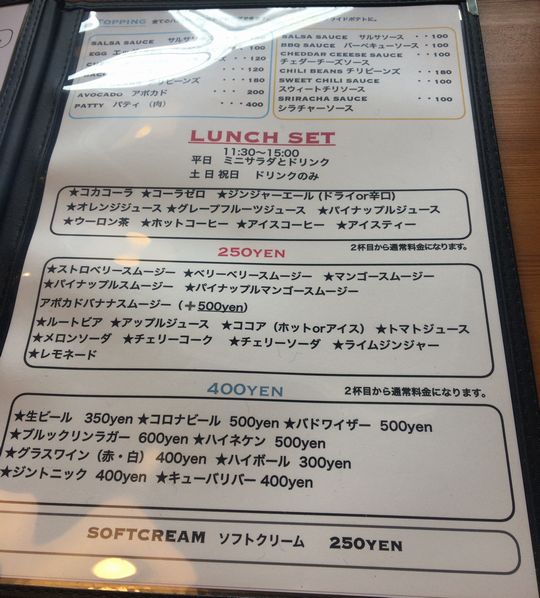 TOPPING
SALSA SAUCE サルサ
EGG
AVOCADO アボカド ・・・ 200
PATTY パティ (肉) ・・・400
ライドポテトに。
SALSA SAUCE サルサソース ・・100
BBQ SAUCE バーベキューソース ・・100
CHEDDAR CEEESE SAUCE ・・100
チェダーチーズソース
CHILI BEANS チリビーンズ ・・180
SWEET CHILI SAUCE ・・100
スウィートチリソース
SRIRACHA SAUCE ・・100
シラチャーソース
LUNCH SET
11:30～15:00
平日 ミニサラダとドリンク
土 日 祝日 ドリンクのみ
★コカコーラ ★コーラゼロ ★ジンジャーエール(ドライor辛口)
★オレンジジュース ★グレープフルーツジュース ★パイナップルジュース
★ウーロン茶 ★ホットコーヒー ★アイスコーヒー ★アイスティー
250YEN 2杯目から通常料金になります。
★ストロベリースムージー ★ベリーベリースムージー ★マンゴースムージー
★パイナップルスムージー ★パイナップルマンゴースムージー
アボカドバナナスムージー (➕500yen)
★ルートビア ★アップルジュース ★ココア(ホットorアイス) ★トマトジュース
★メロンソーダ ★チェリーコーク ★チェリーソーダ ★ライムジンジャー
★レモネード
400YEN 2杯目から通常料金になります。
★生ビール 350yen ★コロナビール 500yen ★バドワイザー 500yen
★ブルックリンラガー 600yen ★ハイネケン 500yen
★グラスワイン(赤・白) 400yen ★ハイボール 300yen
★ジントニック 400yen ★キューバリバー 400yen
SOFTCREAM ソフトクリーム 250YEN